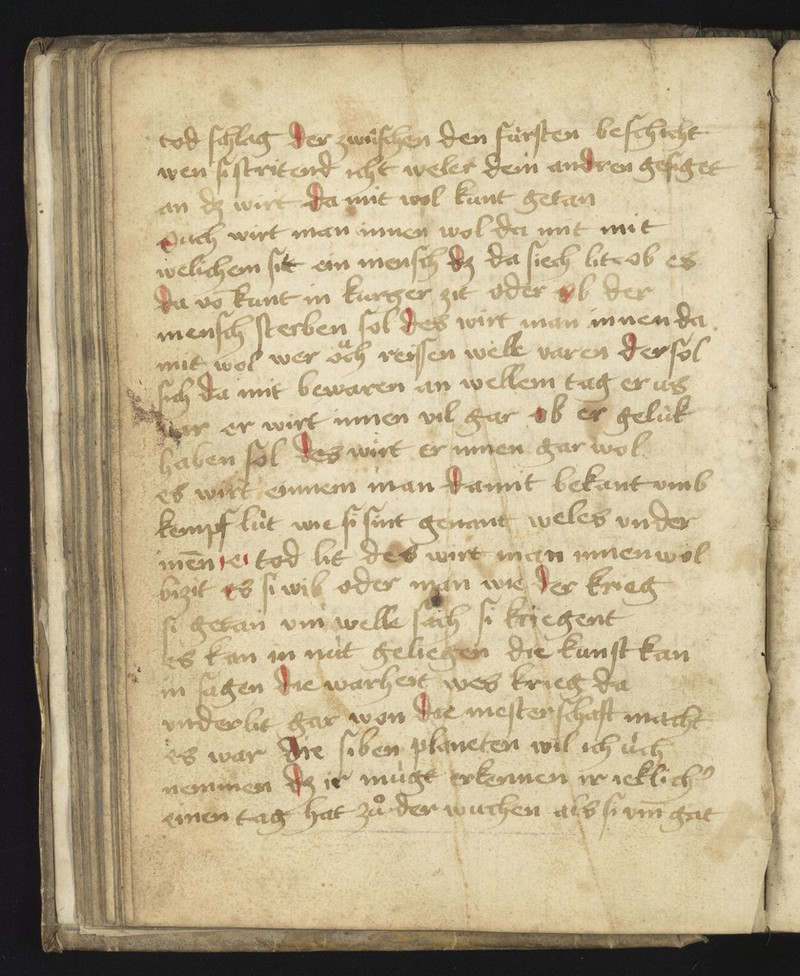 tod schlag der zwüschen den fürsten beschicht
wen si stritend icht weler dem andren gesiget
an dz wirt da mit wol kunt getan
Ouch wirt man innen wol da mit mit
welichem sit ein mensch dz da siech lit ob es
da vo kunt in kurger zit oder ob der
mensch sterben sol des wirt man innen da
mit wol wer och reissen welle varen der sol
sich da mit bewaren an wellem tag er us
var er wirt innen vil gar ob er gelük
haben sol des wirt er innen gar wol
es wirt einnem man damit bekant umb
kempf lüt wie si sint genant weles under
inen e tod lit des wirt man innen wol
bizit es si wib oder man wie der krieg
si getan um welle sach si kriegent
es kan in nüt geliegen die kunst kan
in sagen die warheit wes krieg da
underlit gar won die mesterschaft macht
es war die siben planeten wil ich üch
nemmen dz ir mügt erkennen ir ieklich
einen tag hat zů der wuchen als si um gat